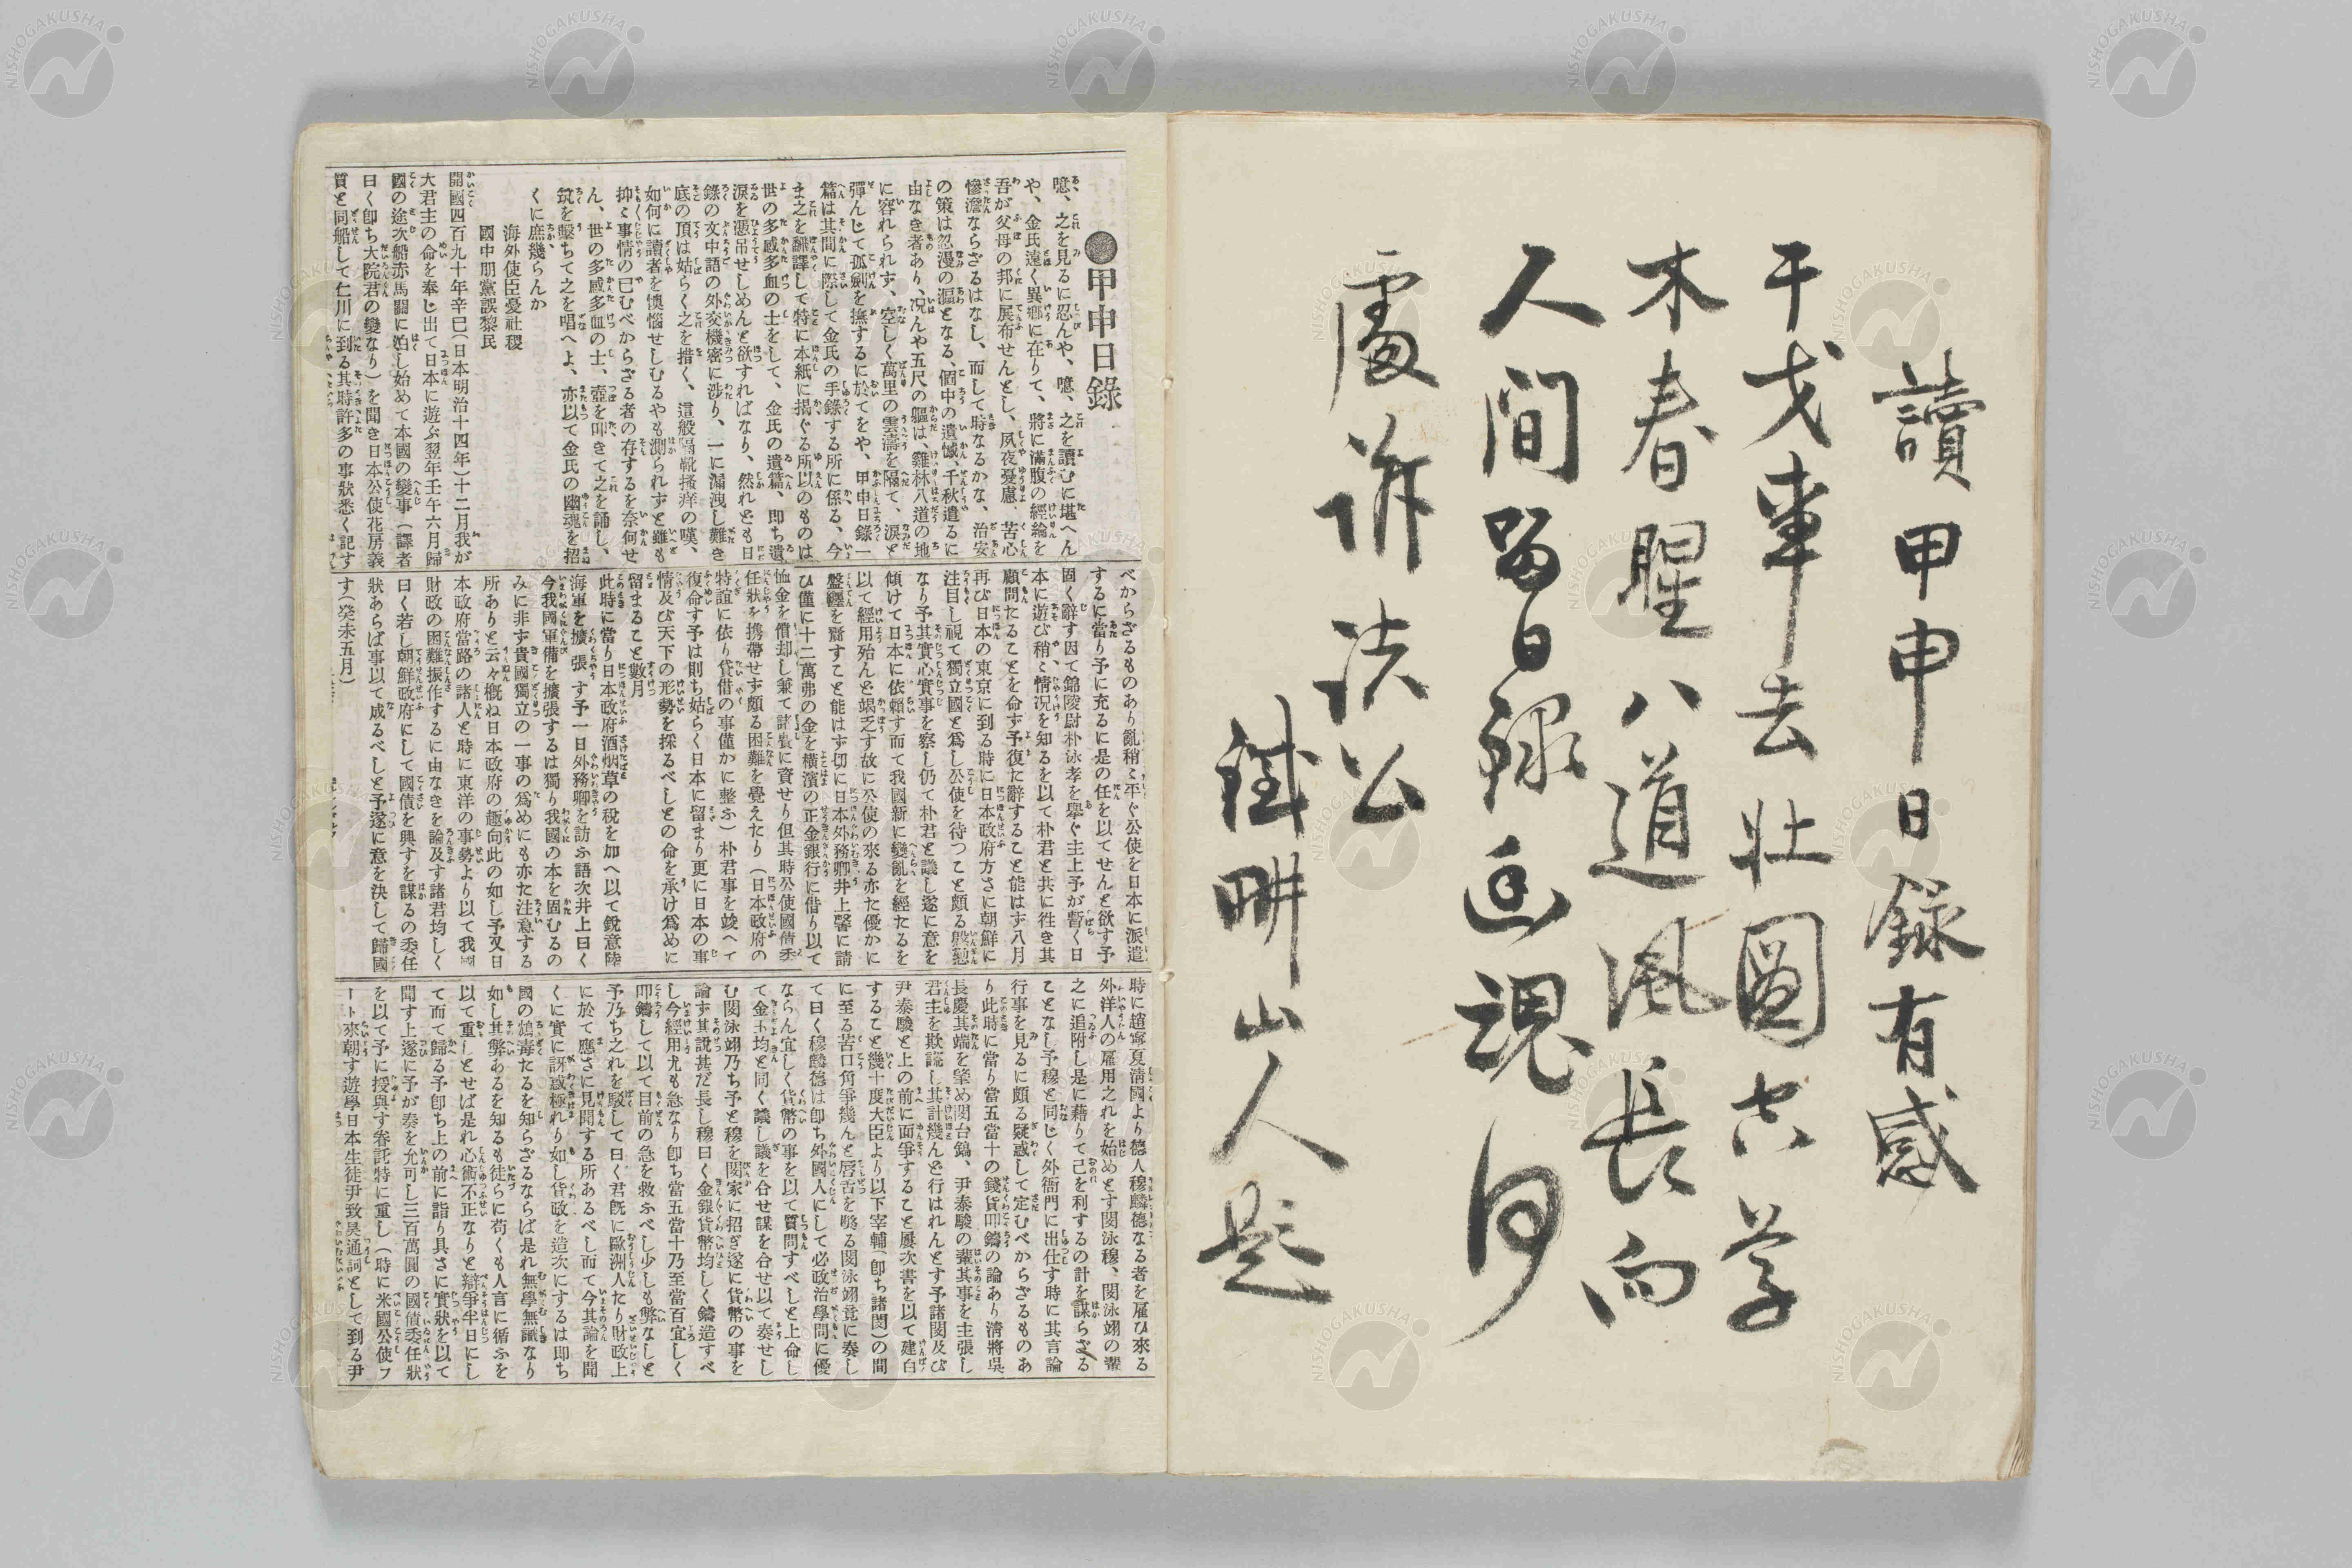 讀甲申日録有感
干戈事去壮圖空草
木春腥八道風長向
人間留日録幽魂何
處訴法公
鐵畊山人題
●甲申日錄
噫、之を見るに忍んや、噫、之を讀むに堪へん
や、金氏遠く異鄉に在りて、將に滿腹の經綸を
吾が父母の邦に展布せんとし、夙夜憂慮、苦心
慘澹ならざるはなし、而して時なるかな、治安
の策は忽漫の漚となる、個中の遺憾、千秋遣るに
由なき者あり、况んや五尺の軀は、雞林八道の地
に容れられず、空しく萬里の雲濤を隔て、淚と
彈んじて孤劍を撫するに於てをや、甲申日錄一
篇は其間に際して金氏の手錄する所に係る、今
ま之を譯して特に本紙に揭ぐる所以のものは
世の多感多血の士をして、金氏の遺篇、即ち遺
淚を憑吊せしめんと欲すればなり、然れとも日
錄の文中語の外交機密に涉り、一に漏洩し難き
底の頂は姑らく之を措く、這般隔靴掻痒の嘆、
如何に讀者を懊惱せしむるやも測られずと雖も
抑々事情の已むべからざる者の存するを奈何せ
ん、世の多感多血の士、壺を叩きて之を誦し、
筑を擊ちて之を唱へよ、亦以て金氏の幽魂を招
くに庶幾らんか
海外使臣憂社稷
國中朋黨誤黎民
開國四百九十年辛巳(日本明治十四年)十二月我が
大君主の命を奉じ出て日本に遊ぶ翌年壬午六月歸
國の途次船赤馬關に泊し始めて本國の變事(譯者
曰く卽ち大院君の變なり)を聞き日本公使花房義
質と同船して仁川に到る其時許多の事狀悉く記す
べからざるものあり亂稍々平ぐ公使を日本に派遣
するに當り予に充るに是の任を以てせんと欲す予
固く辭す因て錦陵尉朴泳孝を擧ぐ主上予が暫く日
本に遊び稍々情况を知るを以て朴君と共に徃き其
顧問たることを命ず予復た辭すること能はず八月
再び日本の東京に到る時に日本政府方さに朝鮮に
注目し視て獨立國と爲し公使を待つこと頗る慇懃
なり予其實心實事を察し仍て朴君と議し遂に意を
傾けて日本に依賴す而て我國新に變亂を經たるを
以て經用殆んと竭乏す故に公使の來る亦た優かに
盤纏を齎すこと能はず切に日本外務卿井上馨に請
ひ僅に十二萬弗の金を橫濱の正金銀行に借り以て
恤金を償却し兼て諸費に資せり但其時公使國債委
任狀を携帶せず頗る困難を覺えたり(日本政府の
特誼に依り貸借の事僅かに整ふ)朴君事を竣へて
復命す予は則ち姑らく日本に留まり更に日本の事
情及び天下の形勢を探るべしとの命を承け爲めに
留まること數月
此時に當り日本政府酒烟草の稅を加へ以て銳意陸
海軍を擴張す予一日外務卿を訪ふ語次井上曰く
今我國軍備を擴張するは獨り我國の本を固むるの
みに非ず貴國獨立の一事の爲めにも亦た注意する
所ありと云々槪ね日本政府の趣向此の如し予又日
本政府當路の諸人と時に東洋の事勢より以て我國
財政の困難振作するに由なきを論及す諸君均しく
曰く若し朝鮮政府にして國債を興すを謀るの委任
狀あらば事以て成るべしと予遂に意を決して歸國
す(癸未五月)
時に趙寧夏淸國より德人穆麟德なる者を雇ひ來る
外洋人の雇用之れを始めとす閔泳穆、閔泳翊の輩
之に追附し是に藉りて己を利するの計を謀らざる
ことなし予穆と同じく外衙門に出仕す時に其言論
行事を見るに頗る疑惑して定むべからざるものあ
り此時に當り當五當十の錢貨卽鑄の論あり淸將吳
長慶其端を肇め閔台鎬、尹泰駿の輩其事を主張し
君主を欺謊し其計幾んと行はれんとす予諸閔及び
尹泰駿と上の前に面爭すること屢次書を以て建白
すること幾十度大臣より以下宰輔(卽ち諸閔)の間
に至る苦口角爭幾んと唇舌を弊る閔泳翊竟に奏し
て曰く穆麟德は卽ち外國人にして必政治學問に優
ならん宜しく貨幣の事を以て質問すべしと上命し
て金玉均と同く議し議を合せ謀を合せ以て奏せし
む閔泳翊乃ち予と穆を閔家に招ぎ遂に貨幣の事を
論ず其說甚だ長し穆曰く金銀貨幣均しく鑄造すべ
し今經用尤も急なり卽ち當五當十乃至當百宜しく
卽鑄して以て目前の急を救ふべし少しも弊なしと
予乃ち之れを駁して曰く君旣に歐洲人たり財政上
に於て應さに見聞する所あるべし而て今其論を聞
くに實に訝惑極れり如し貨政を造次にするは卽ち
國の鴆毒たるを知らざるならば是れ無學無識なり
如し其弊あるを知るも徒らに苟くも人言に循ふを
以て重しとせば是れ心術不正なりと辯爭半日にし
て而て歸る予卽ち上の前に詣り具さに實狀を以て
聞す上遂に予が奏を允可し三百萬圓の國債委任狀
を以て予に授與す眷託特に重し(時に米國公使フ
ート來朝す遊學日本生徒尹致昊通詞として到る尹
NISHOGAKUSHA